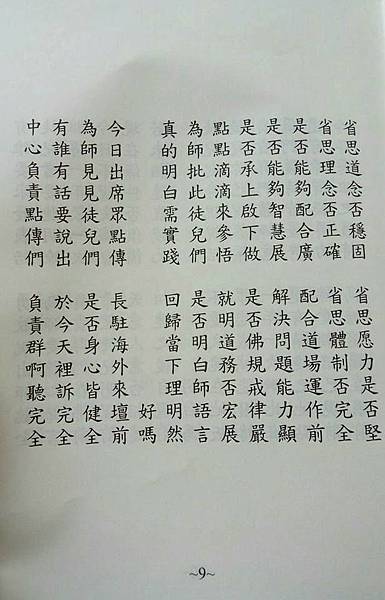 省思道念否穩固　省思愿力是否堅
省思理念否正確　省思體制否完全
是否能夠配合廣　配合道場運作前
是否能夠智慧展　解決問題能力顯
是否承上啟下做　是否佛規戒律嚴
點點滴滴來參悟　就明道務否宏展
為師批此徒兒們　是否明白師語言
真的明白需實踐　回歸當下理明然
好嗎
今日出席眾點傳　長駐海外來壇前
為師見見徒兒們　是否身心皆健全
有誰有話要說出　於今天裡訴完全
中心負責點傳們　負責群啊聽完全
~9~